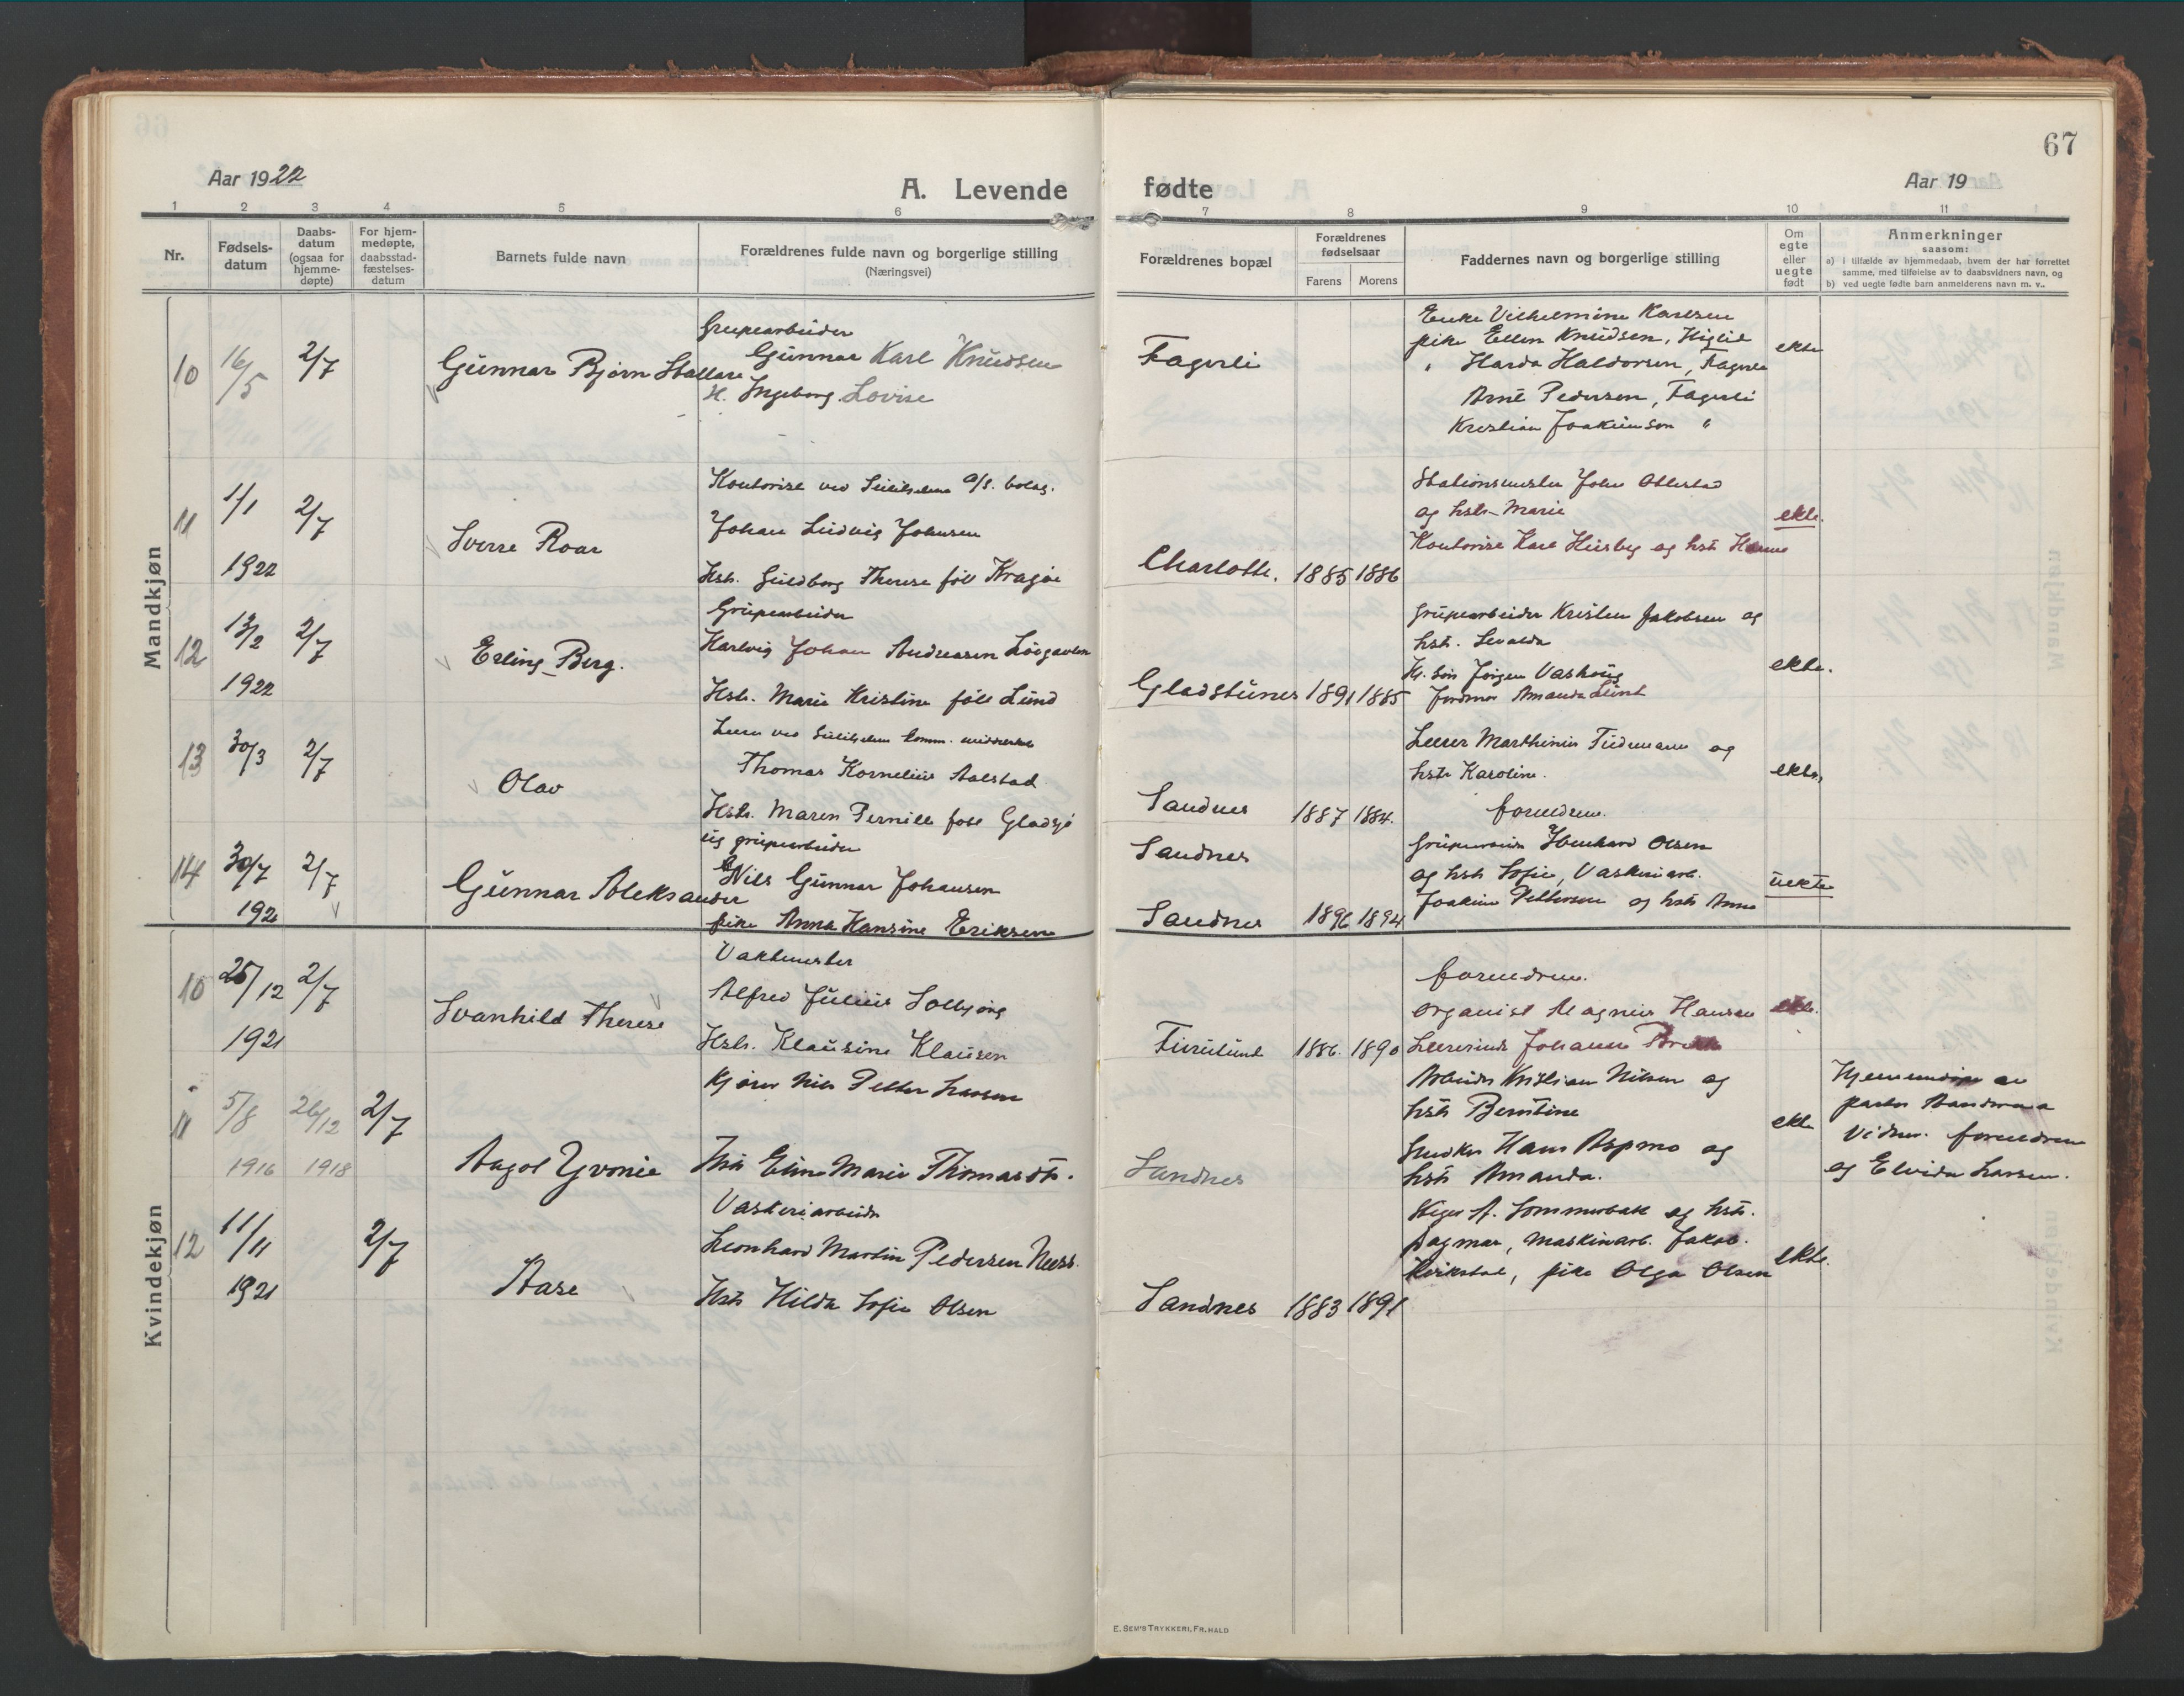 67
Aar 1922
A. Levende fødte
Aar 19
1 2 3 4 5 6 7 8 9 10 11
Nr.
Fødselsdatum
Daabsdatum (ogsaa for hjemmedøpte)
For hjemmedøpte, daabsstadfæstelsesdatum
Barnets fulde navn
Forældrenes fulde navn og borgerlige stilling
(Næringsvei)
Forældrenes bopæl
Forældrenes fødselsaar
Farens Morens
Faddernes navn og borgerlige stilling
Om egte eller uegte født
Anmerkninger
saasom:
a) i tilfælde av hjemmedaab, hvem der har forrettet samme, med tilføielse av to daabsvidners navn, og
b) ved uegte fødte barn anmelderens navn m. v..
Mandkjøn
10 16/5 2/7
Gunnar Bjørn
Grupearbeider
Gunnar Karl Knudsen
H. Ingeborg Lovise
Fagerli
Enke Vilhelmine Karlsen
pike Ellen Knudsen,
Harda Haldorsen, Fagerli
Arne Pedersen, Fagerli
Kristian Joakimson "
ekte
11 1/1 1922 2/7
Sverre Roar
Kontorist ved Sulitjelma A/S.
Johan Ludvig Johnsen
Hstr. Guldborg Therese født
Charlotte. 1885 1886
Stationsmester John
og hstr. Marie
Kontorist Karl Husby og hstr
ekte.
12 13/2 1922 2/7
Erling Berg.
Grupearbeider
Hartvig Johan Andreasen
Hstr. Marie Kristine født Lund
Gladstunes 1891 1885
Grupearbeider Kristen Jakobsen og
hstr.
Jørgen
Jordmor Amanda Lund
ekte.
13 30/3 2/7
Olav
Lærer ved Sulitjelma komm.
Thomas Kornelius Aalstad
Hstr. Maren Pernille født Gladsjø
Sandnes 1887 1884.
Lærer Marthinus Tidemann og
hstr Karoline.
foreldrene.
ekte.
14 30/7 1921 2/7
Gunnar Aleksander
ug grupearbeider
Nils Gunnar Johansen
pike Anna Hansine Eriksen
Sandnes
Sandnes 1896 1894
Olsen
og hstr Sofie, Vaskeriarb.
Joakim Pettersen og hstr Anna
uekte
Kvindekjøn
10 25/12 1921 2/7
Svanhild Therese
Vaktmester
Alfred Julius
Hstr. Klausine Klausen
Furulund 1886. 1890
foreldrene.
Organist Magnus Hansen
Lærerinde Johanne
ekte.
11 5/8 1916 26/12 1918 2/7
Aagot Yvonie
Kjører Nils Petter Larsen
Hstr Eline Marie Thomasdtr.
Sandnes
Arbeider Kristian Nilsen og
hstr Berntine
Snedker Hans Aspmo og
hstr Amanda.
ekte
Hjemmedøpt av
Vidner. foreldrene
og Elvida Larsen.
12 11/11 1921 2/7
Aase
Vaskeriarbeider
Leonhard Martin Pedersen
Hstr Hilda Sofie Olsen
Sandnes 1883 1891
Stiger A. Sommerbakk og hstr.
Dagmar, maskinarb. Jakob
pike Olga Olsen
ekte.
E. SEM'S TRYKKERI, FR.HALD